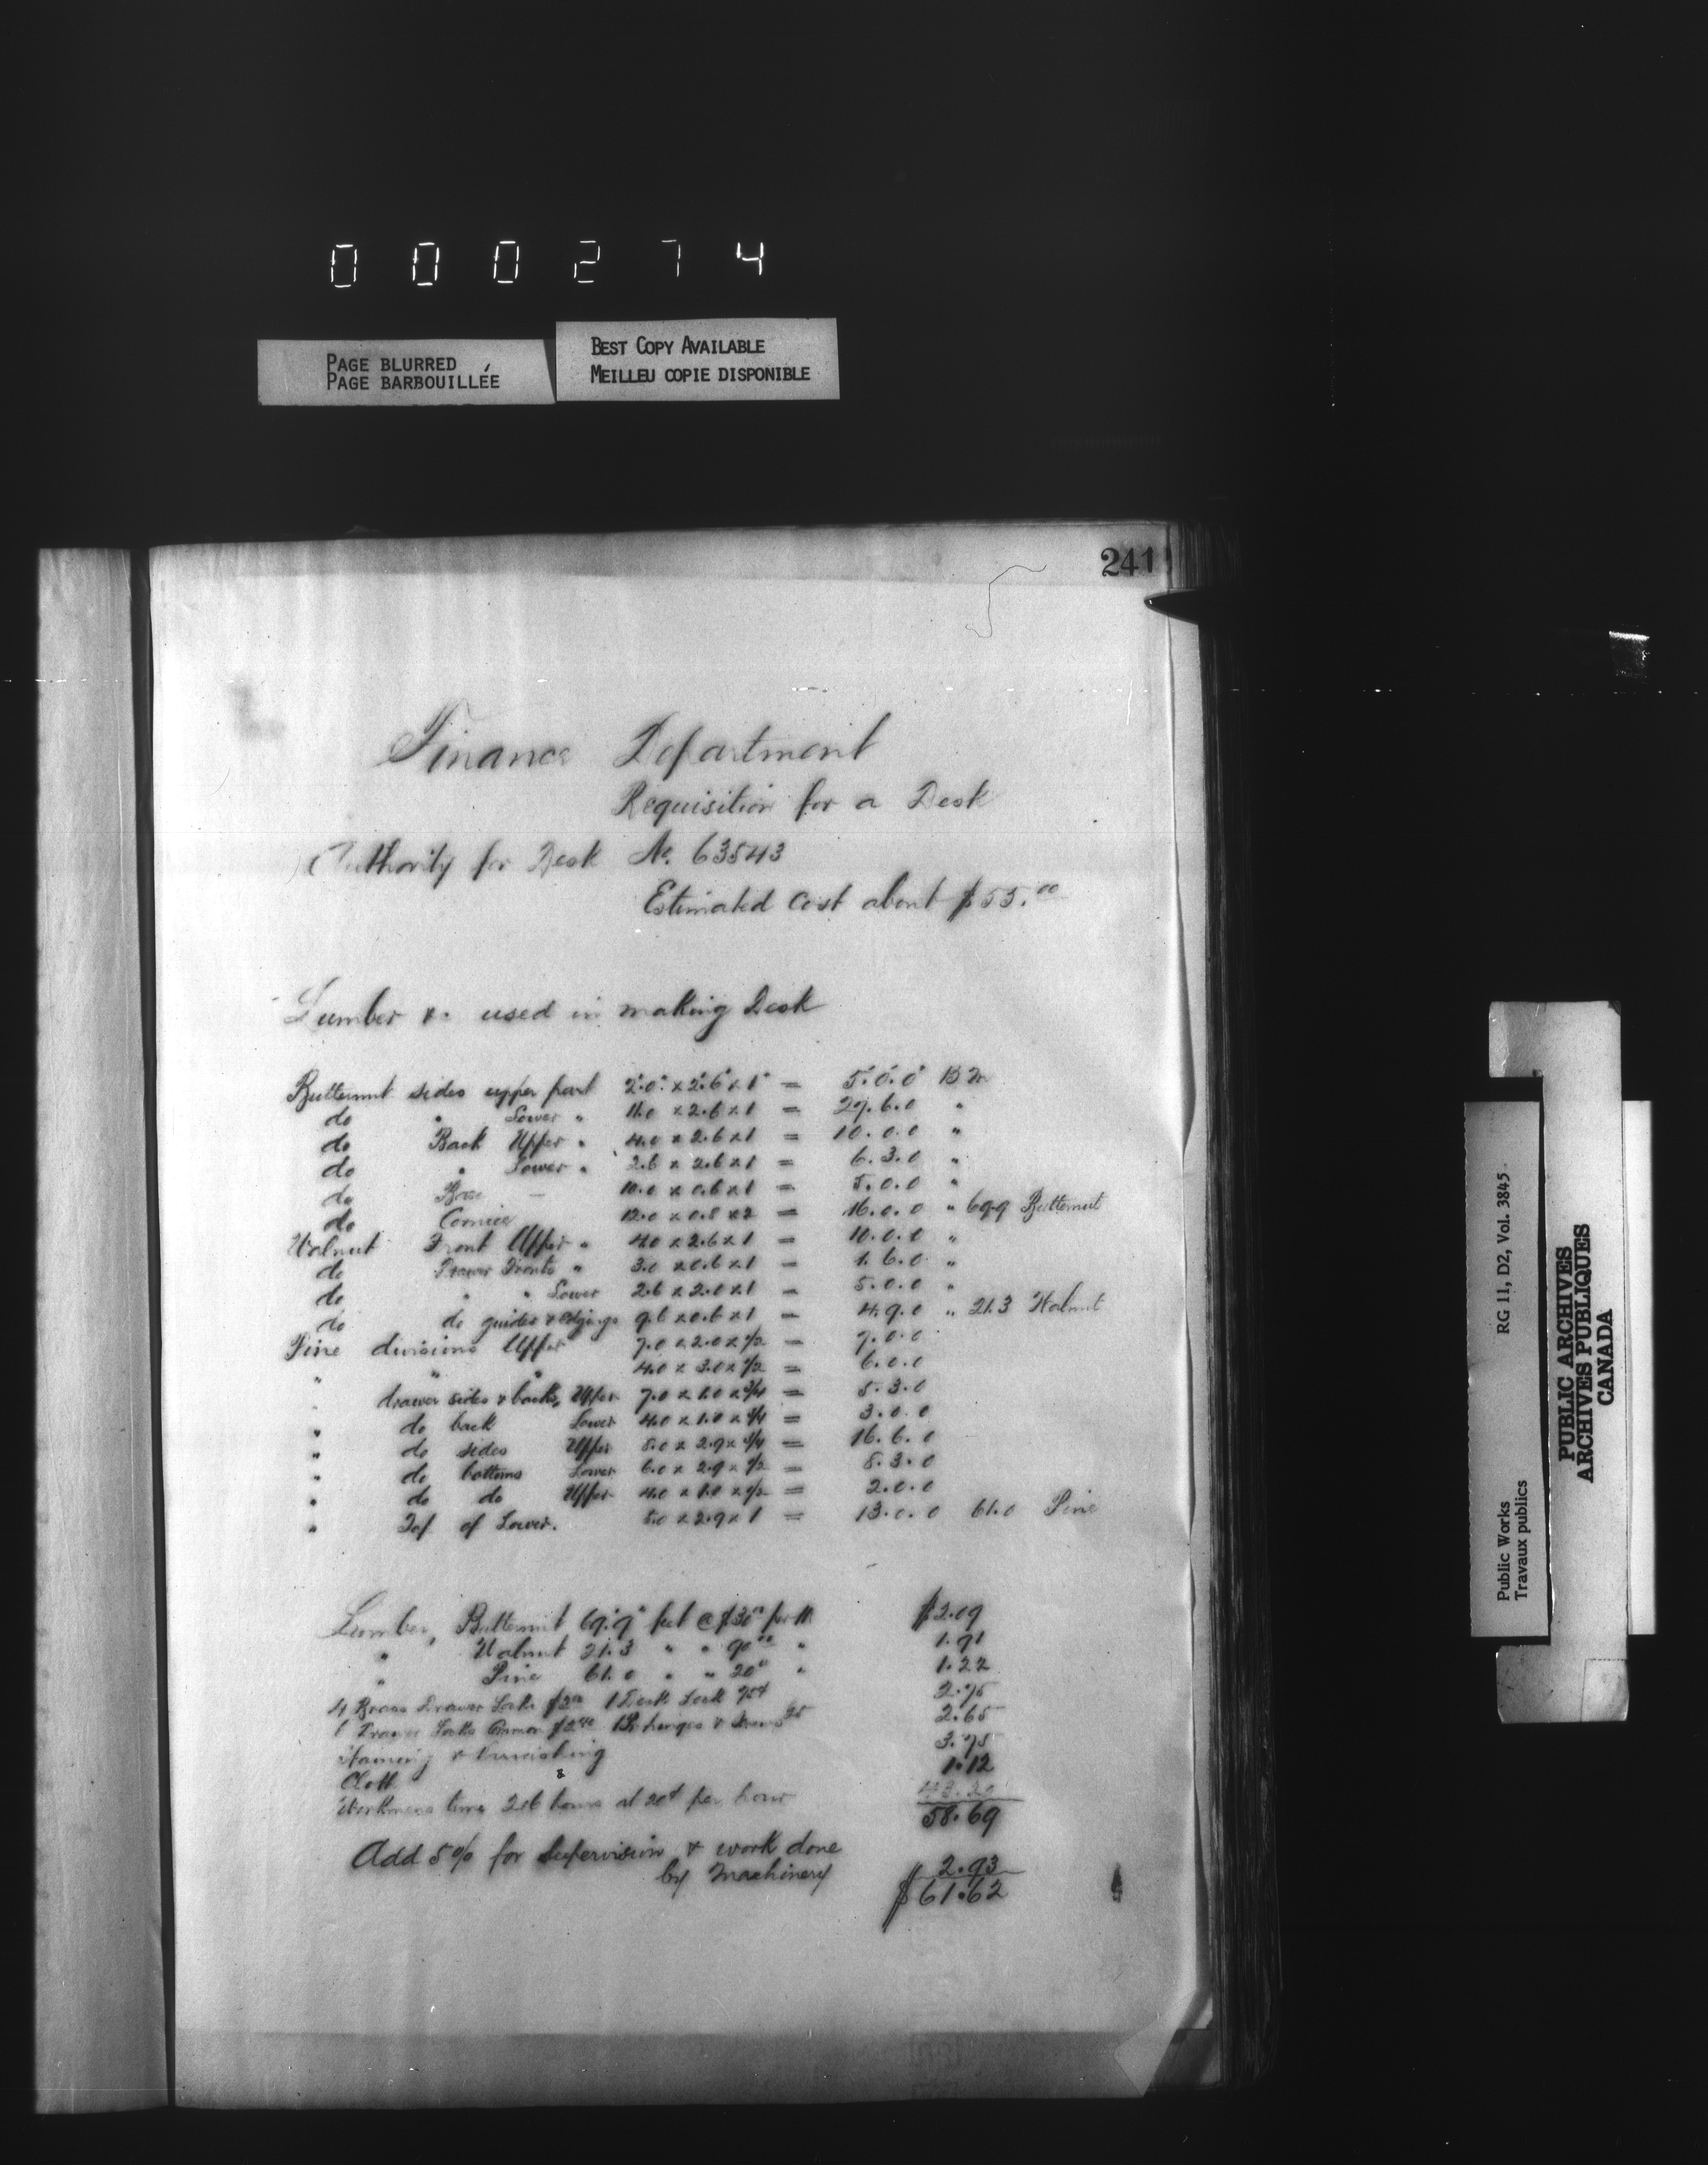 000274
PAGE BLURRED
PAGE BARBOUILLÉE
BEST COPY AVAILABLE
MEILLEU COPIE DISPONIBLE
241
Finance Department
Requisition for a Desk
Authority for Desk No. 63543
Estimated cost about $55.00
Lumber &c used in making Desk
Butternut sides upper part 2'.0" x 2'.6" x 1" = 5'.0'.0" B M
do " Lower " 11.0 x 2.6 x 1 = 27.6.0 "
do Back Upper " 4.0 x 2.6 x 1 = 10.0.0 "
do " Lower " 2.6 x 2.6 x 1 = 6.3.0 "
do Base — 10.0 x 0.6 x 1 = 5.0.0 "
do Cornice 12.0 x 0.8 x 2 = 16.0.0 " 69.9 Butternut
Walnut Front Upper " 4.0 x 2.6 x 1 = 10.0.0 "
do Drawer Fronts " 3.0 x 0.6 x 1 = 1.6.0 "
do " " Lower 2.6 x 2.0 x 1 = 5.0.0 "
do do guides & edgings 9.6 x 0.6 x 1 = 4.9.0 " 21.3 Walnut
Pine divisions Upper 7.0 x 2.0 x 1/2 = 7.0.0
" " " 4.0 x 3.0 x 1/2 = 6.0.0
" drawer sides & backs, Upper 7.0 x 1.0 x 3/4 = 5.3.0
" do back Lower 4.0 x 1.0 x 3/4 = 3.0.0
" do sides Upper 8.0 x 2.9 x 3/4 = 16.6.0
" do bottoms Lower 6.0 x 2.9 x 1/2 = 8.3.0
" do do Upper 4.0 x 1.0 x 1/2 = 2.0.0
" Top of Lower. 5.0 x 2.9 x 1 = 13.0.0 61.0 Pine
Lumber, Butternut 69'.9" feet @ $30.00 per M $2.09
" Walnut 21.3 " " 90.00 " 1.91
" Pine 61.0 " " 20.00 " 1.22
4 Brass Drawer Locks $2.00 1 Desk Lock 75¢ 2.75
Drawer Locks Common $2.40 1 Pr hinges & Screws 25 2.65
Staining & Varnishing 3.75
Cloth 1.12
Workmens time 216 hours at 20¢ per hour 43.20
58.69
Add 5% for Supervision & work done
by Machinery 2.93
$61.62
Public Works
Travaux publics
RG 11, D2, Vol. 3845
PUBLIC ARCHIVES
ARCHIVES PUBLIQUES
CANADA